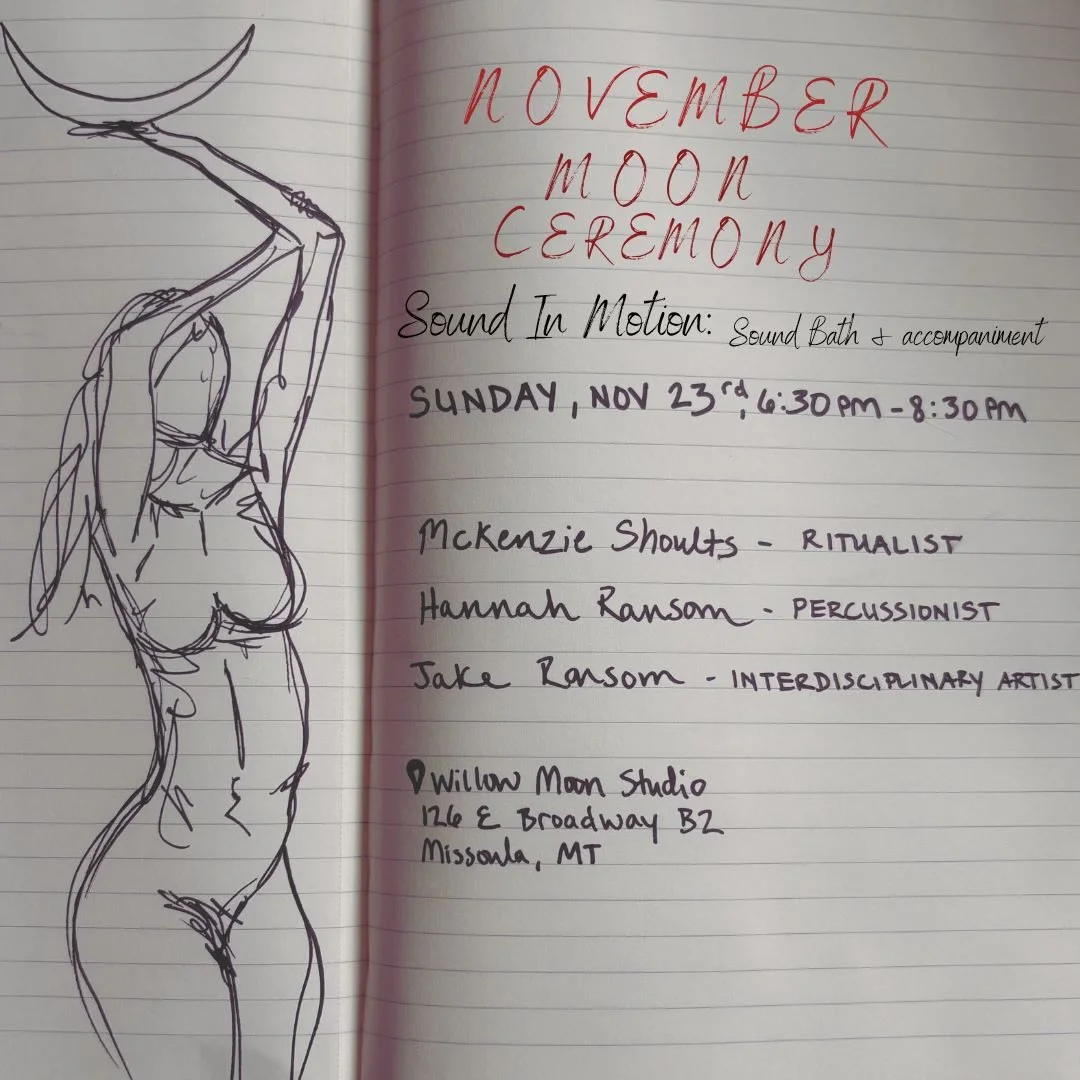 NOVEMBER
MOON
CEREMONY
Sound In Motion: Sound Bath & accompaniment
SUNDAY, NOV 23rd, 6:30PM-8:30PM
McKenzie Shoults - RITUALIST
Hannah Ransom - PERCUSSIONIST
Jake Ransom - INTERDISCIPLINARY ARTIST
Willow Moon Studio
126 E Broadway B2
Missoula, MT